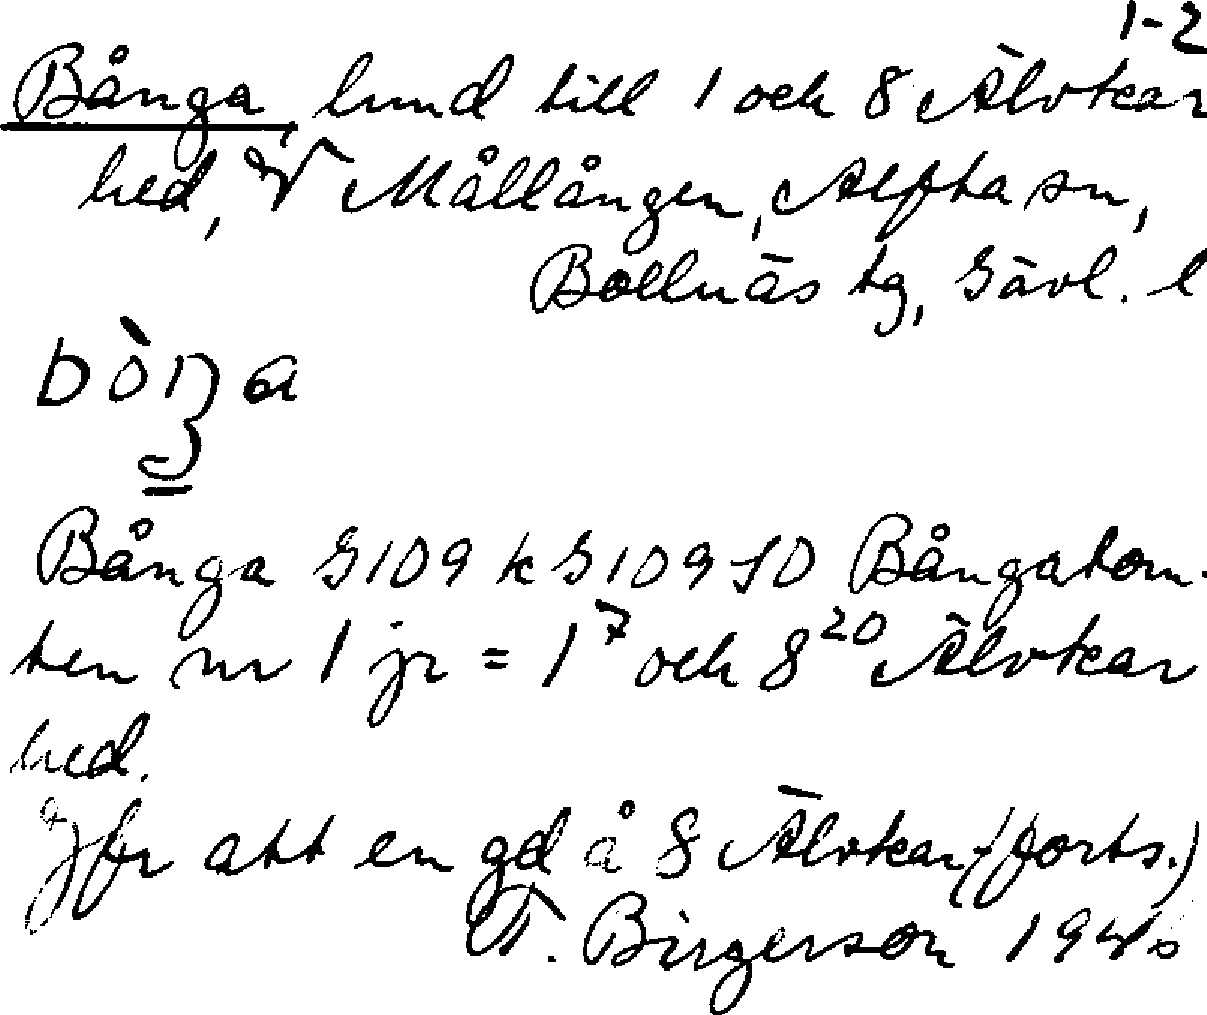 1-2
Bånga, lund till 1 och 8 Älvkar
hed, V Mållången, Alfta sn,
Bollnäs tg, Gävl. l
bòŋa
Bånga G109 k G109 SO Bångatom-
ten nr 1 jr = 1⁷ och 8²⁰ Älvkar
hed.
Jfr att en gd å 8 Älvkar- (forts.)
T. Birgerson